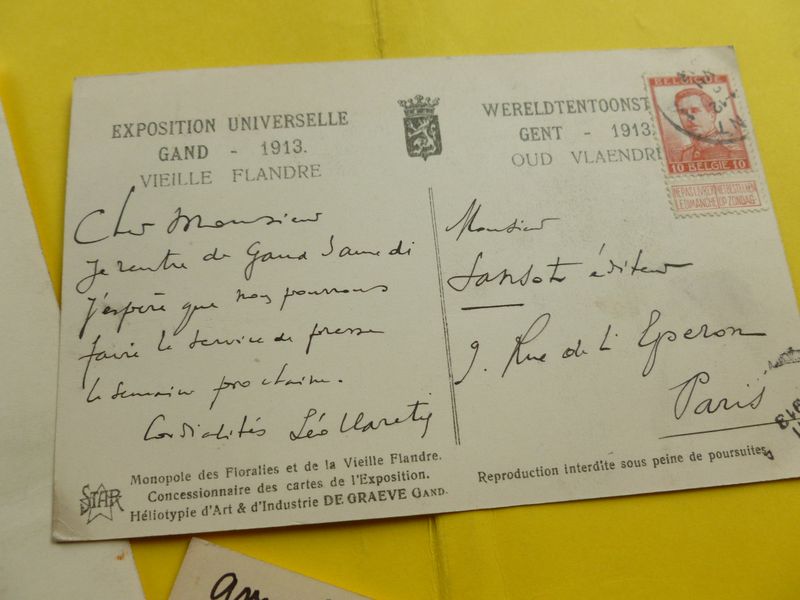 EXPOSITION UNIVERSELLE
GAND - 1913.
VIEILLE FLANDRE
WERELDTENTOONST
GENT - 1913
OUD VLAENDR
BELGIQUE
10 BELGIE 10
NE PAS LIVRER LE DIMANCHE
NIET BESTELLEN OP ZONDAG
Cher Monsieur
Je rentre de Gand Samedi
J'espère que nous pourrons
faire le service de presse
la semaine prochaine.
Cordialités Léo Claretie
Monsieur
Sansot éditeur
9. Rue de l'Eperon
Paris
STAR
Monopole des Floralies et de la Vieille Flandre.
Concessionnaire des cartes de l'Exposition.
Héliotypie d'Art & d'Industrie DE GRAEVE GAND.
Reproduction interdite sous peine de poursuites.